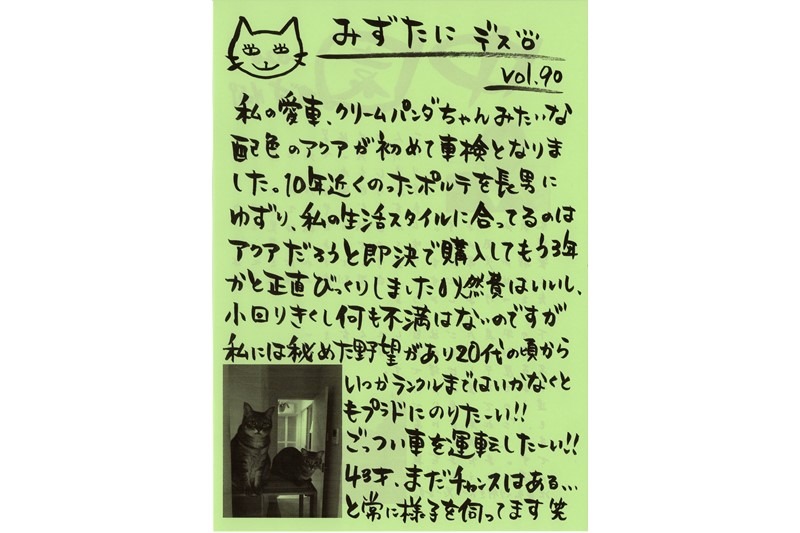 みずたに デス
vol.90
私の愛車、クリームパンダちゃんみたいな
配色のアクアが初めて車検となりま
した。10年近くのったポルテを長男に
ゆずり、私の生活スタイルに合ってるのは
アクアだろうと即決で購入してもう3年
かと正直びっくりしました!燃費はいいし、
小回りきくし何も不満はないのですが
私には秘めた野望があり20代の頃から
いつかランクルまではいかなくと
もプラドにのりたーい!!
ごっつい車を運転したーい!!
43才、まだチャンスはある...
と常に様子を伺ってます 笑